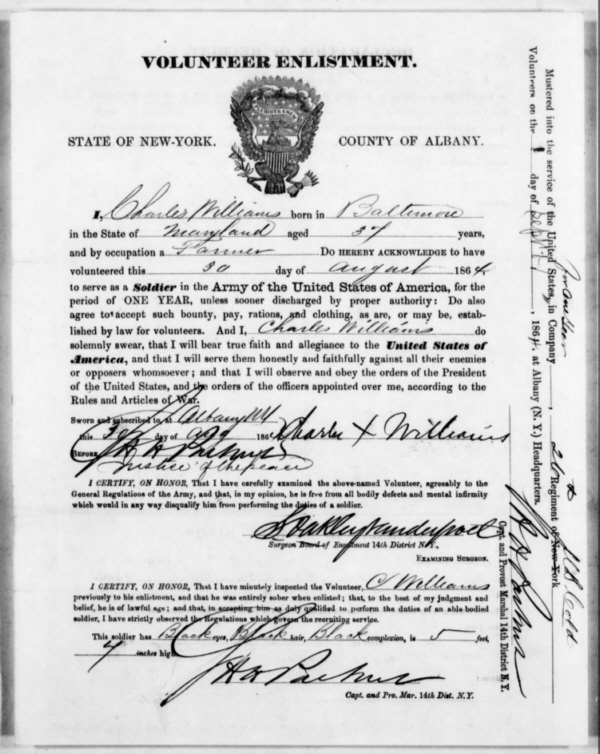 VOLUNTEER ENLISTMENT.
STATE OF NEW-YORK. COUNTY OF ALBANY.
I, Charles Williams born in Baltimore
in the State of Maryland aged 37 years,
and by occupation a Farmer Do HEREBY ACKNOWLEDGE to have
volunteered this 30 day of August 1864
to serve as a Soldier in the Army of the United States of America, for the
period of ONE YEAR, unless sooner discharged by proper authority: Do also
agree to accept such bounty, pay, rations, and clothing, as are, or may be, estab-
lished by law for volunteers. And I, Charles Williams do
solemnly swear, that I will bear true faith and allegiance to the United States of
America, and that I will serve them honestly and faithfully against all their enemies
or opposers whomsoever; and that I will observe and obey the orders of the President
of the United States, and the orders of the officers appointed over me, according to the
Rules and Articles of War.
Sworn and subscribed to, at Albany NY
this 30 day of Aug 1864 Charles X Williams
BEFORE H H Parker
Justice of the peace
I CERTIFY, ON HONOR, That I have carefully examined the above-named Volunteer, agreeably to the
General Regulations of the Army, and that, in my opinion, he is free from all bodily defects and mental infirmity
which would in any way disqualify him from performing the duties of a soldier.
S Oakley Vanderpoel
Surgeon Board of Enrollment 14th District N. Y.,
EXAMINING SURGEON.
I CERTIFY, ON HONOR, That I have minutely inspected the Volunteer, C Williams
previously to his enlistment, and that he was entirely sober when enlisted; that, to the best of my judgment and
belief, he is of lawful age; and that, in accepting him as duly qualified to perform the duties of an able-bodied
soldier, I have strictly observed the Regulations which govern the recruiting service.
This soldier has Black eyes, Black hair, Black complexion, is 5 feet,
4 inches high.
Capt. and Pro. Mar. 14th Dist. N. Y.
Mustered into the service of the United States, in Company , 26th Regiment of New-York U.S. Cold
for One Year
Volunteers on the 1 day of Sept , 1864, at Albany (N. Y.) Headquarters.
Capt. and Provost Marshal 14th District N. Y.